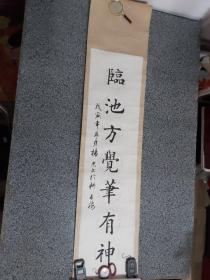 臨池方覺筆有神
戊寅年五月楊